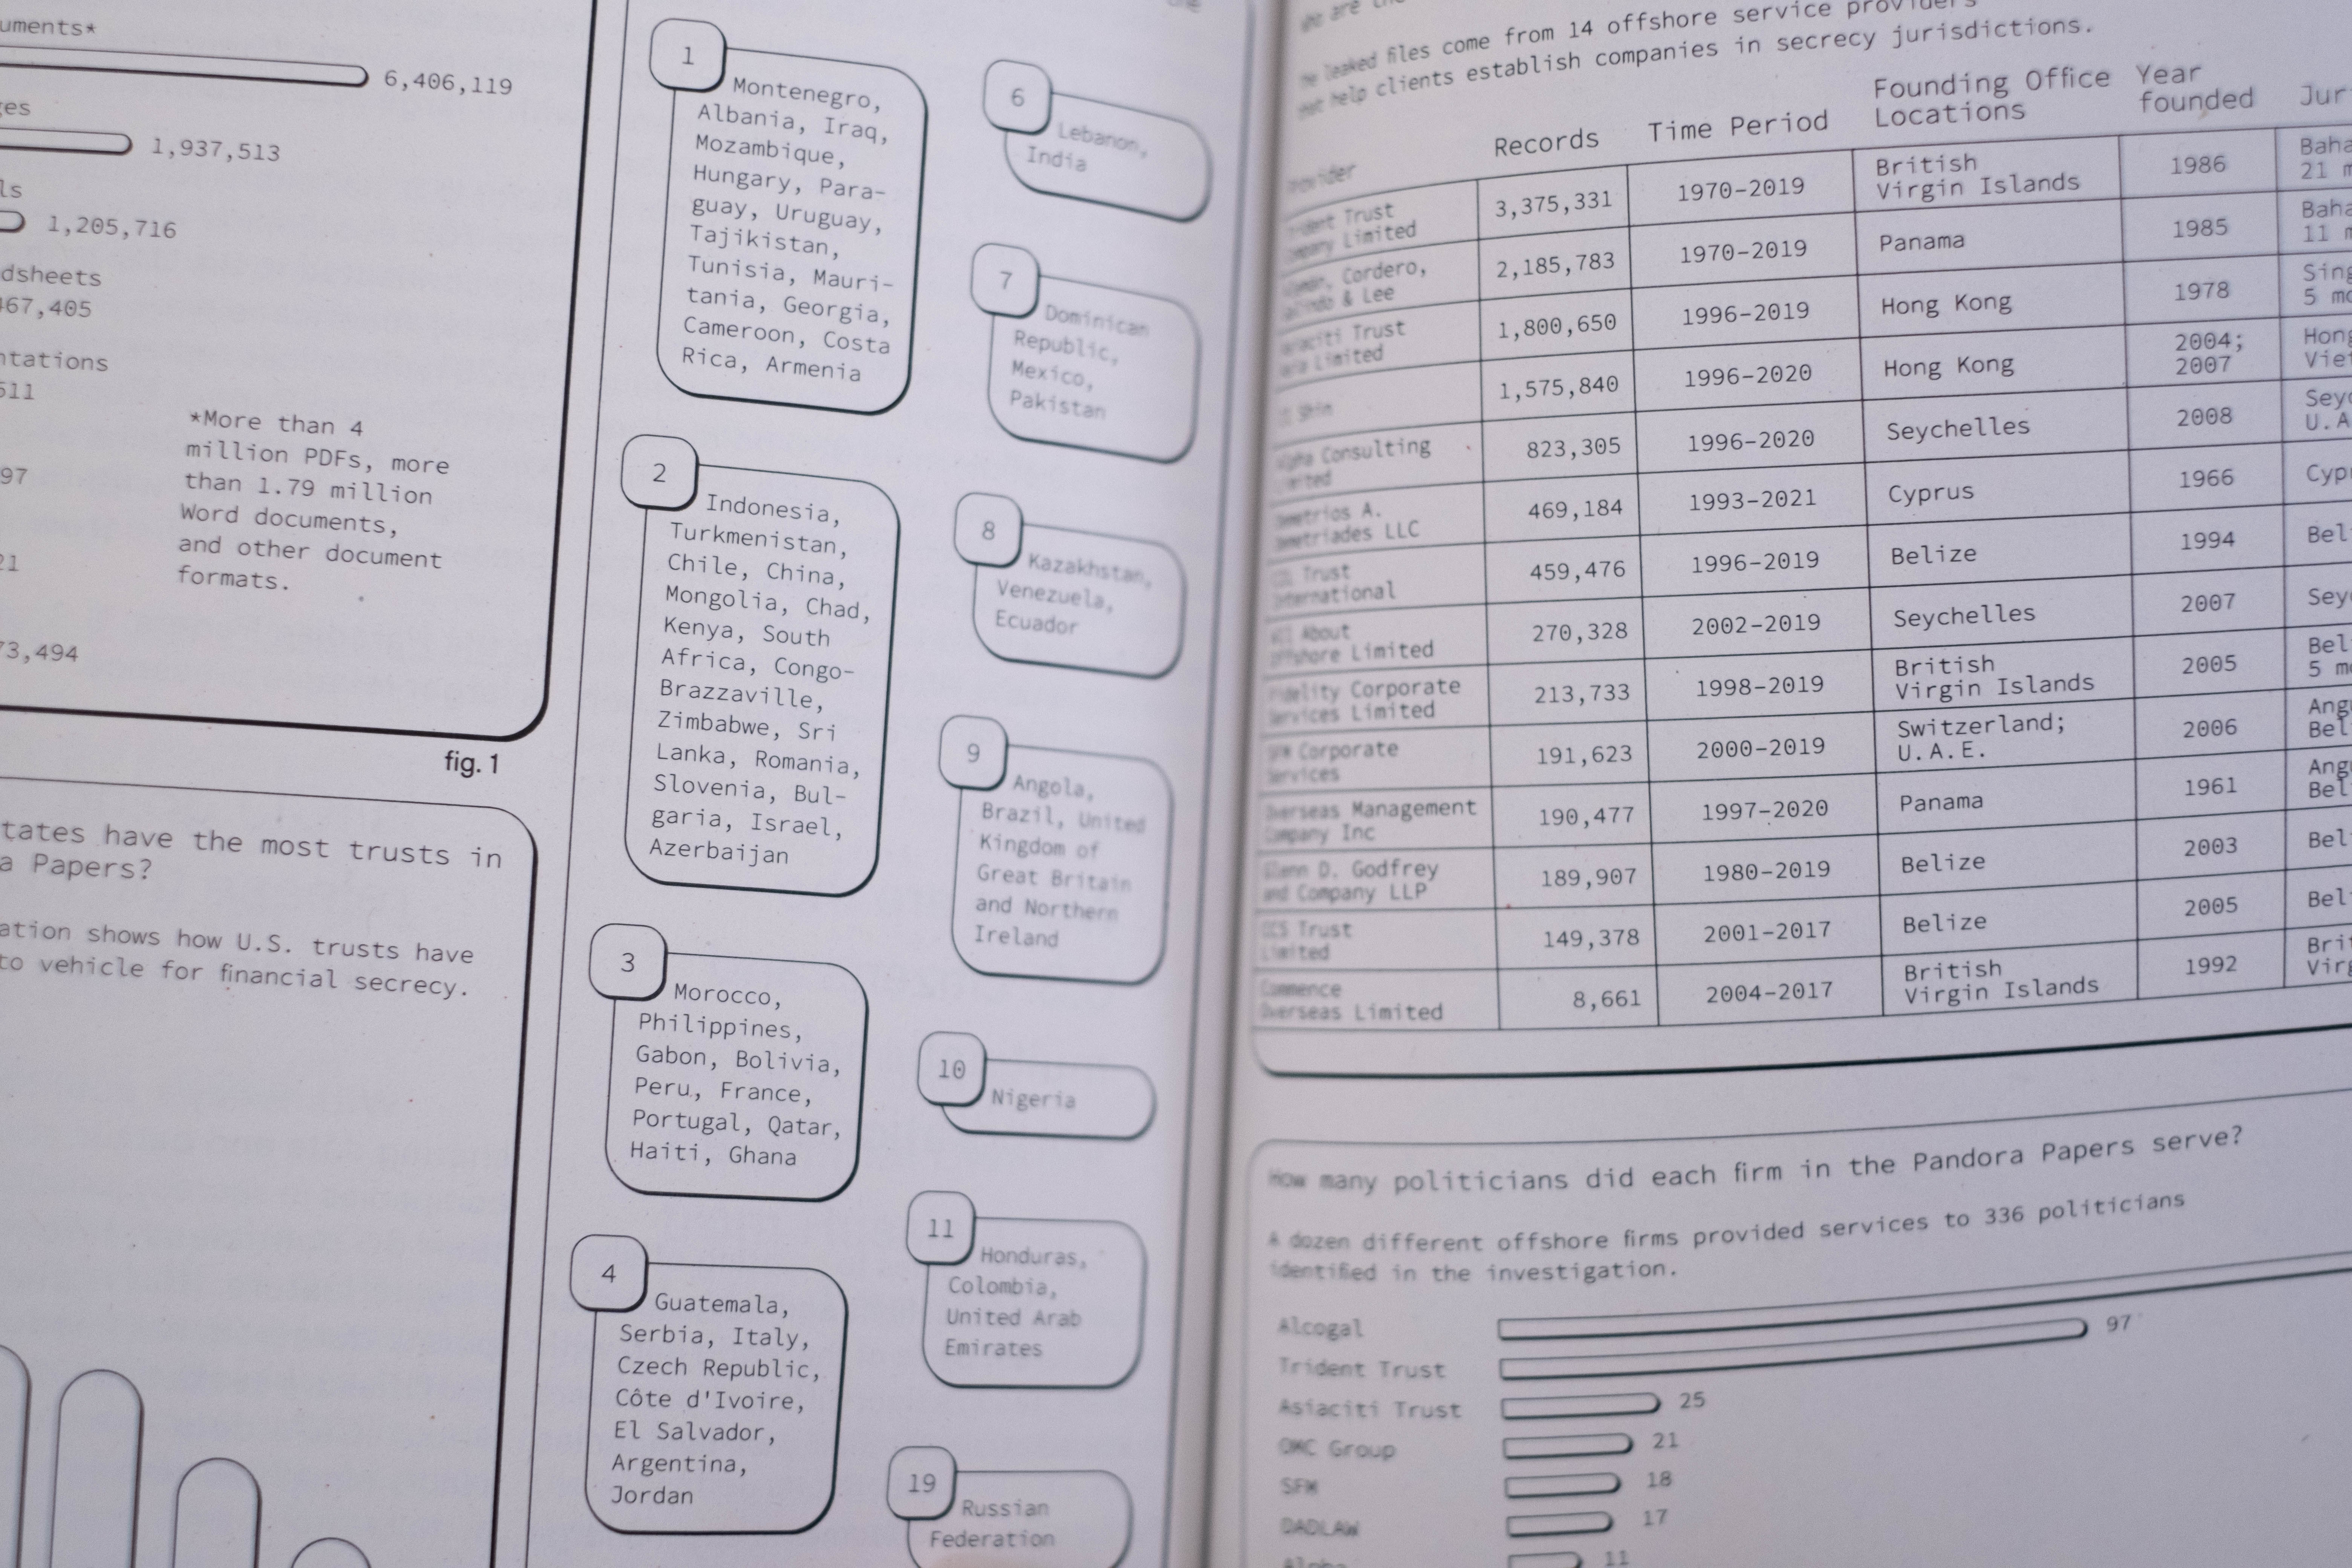 uments*
6,406,119
ges
1,937,513
ls
1,205,716
dsheets
467,405
ntations
511
97
21
73,494
*More than 4
million PDFs, more
than 1.79 million
Word documents,
and other document
formats.
fig. 1
tates have the most trusts in
a Papers?
ation shows how U.S. trusts have
to vehicle for financial secrecy.
1
Montenegro,
Albania, Iraq,
Mozambique,
Hungary, Para-
guay, Uruguay,
Tajikistan,
Tunisia, Mauri-
tania, Georgia,
Cameroon, Costa
Rica, Armenia
2
Indonesia,
Turkmenistan,
Chile, China,
Mongolia, Chad,
Kenya, South
Africa, Congo-
Brazzaville,
Zimbabwe, Sri
Lanka, Romania,
Slovenia, Bul-
garia, Israel,
Azerbaijan
3
Morocco,
Philippines,
Gabon, Bolivia,
Peru, France,
Portugal, Qatar,
Haiti, Ghana
4
Guatemala,
Serbia, Italy,
Czech Republic,
Côte d'Ivoire,
El Salvador,
Argentina,
Jordan
6
Lebanon,
India
7
Dominican
Republic,
Mexico,
Pakistan
8
Kazakhstan,
Venezuela,
Ecuador
9
Angola,
Brazil, United
Kingdom of
Great Britain
and Northern
Ireland
10
Nigeria
11
Honduras,
Colombia,
United Arab
Emirates
19
Russian
Federation
are the
leaked files come from 14 offshore service providers
help clients establish companies in secrecy jurisdictions.
Provider Records Time Period Founding Office Locations Year founded Jur
Trident Trust Company Limited 3,375,331 1970–2019 British Virgin Islands 1986 Baha 21 m
Cordero, & Lee 2,185,783 1970–2019 Panama 1985 Baha 11 m
Asiaciti Trust Asia Limited 1,800,650 1996–2019 Hong Kong 1978 Sing 5 mo
Shin 1,575,840 1996–2020 Hong Kong 2004; 2007 Hong Viet
Alpha Consulting Limited 823,305 1996–2020 Seychelles 2008 Seyc U.A
Demetrios A. Demetriades LLC 469,184 1993–2021 Cyprus 1966 Cypr
Trust International 459,476 1996–2019 Belize 1994 Bel
All About Offshore Limited 270,328 2002–2019 Seychelles 2007 Seyc
Fidelity Corporate Services Limited 213,733 1998–2019 British Virgin Islands 2005 Bel 5 mo
SFM Corporate Services 191,623 2000–2019 Switzerland; U.A.E. 2006 Angu Bel
Overseas Management Company Inc 190,477 1997–2020 Panama 1961 Angu Bel
Glenn D. Godfrey and Company LLP 189,907 1980–2019 Belize 2003 Bel
CCS Trust Limited 149,378 2001–2017 Belize 2005 Bel
Commence Overseas Limited 8,661 2004–2017 British Virgin Islands 1992 Brit Virg
How many politicians did each firm in the Pandora Papers serve?
A dozen different offshore firms provided services to 336 politicians
identified in the investigation.
Alcogal
Trident Trust 97
Asiaciti Trust 25
OMC Group 21
SFM 18
DADLAW 17
Alpha 11